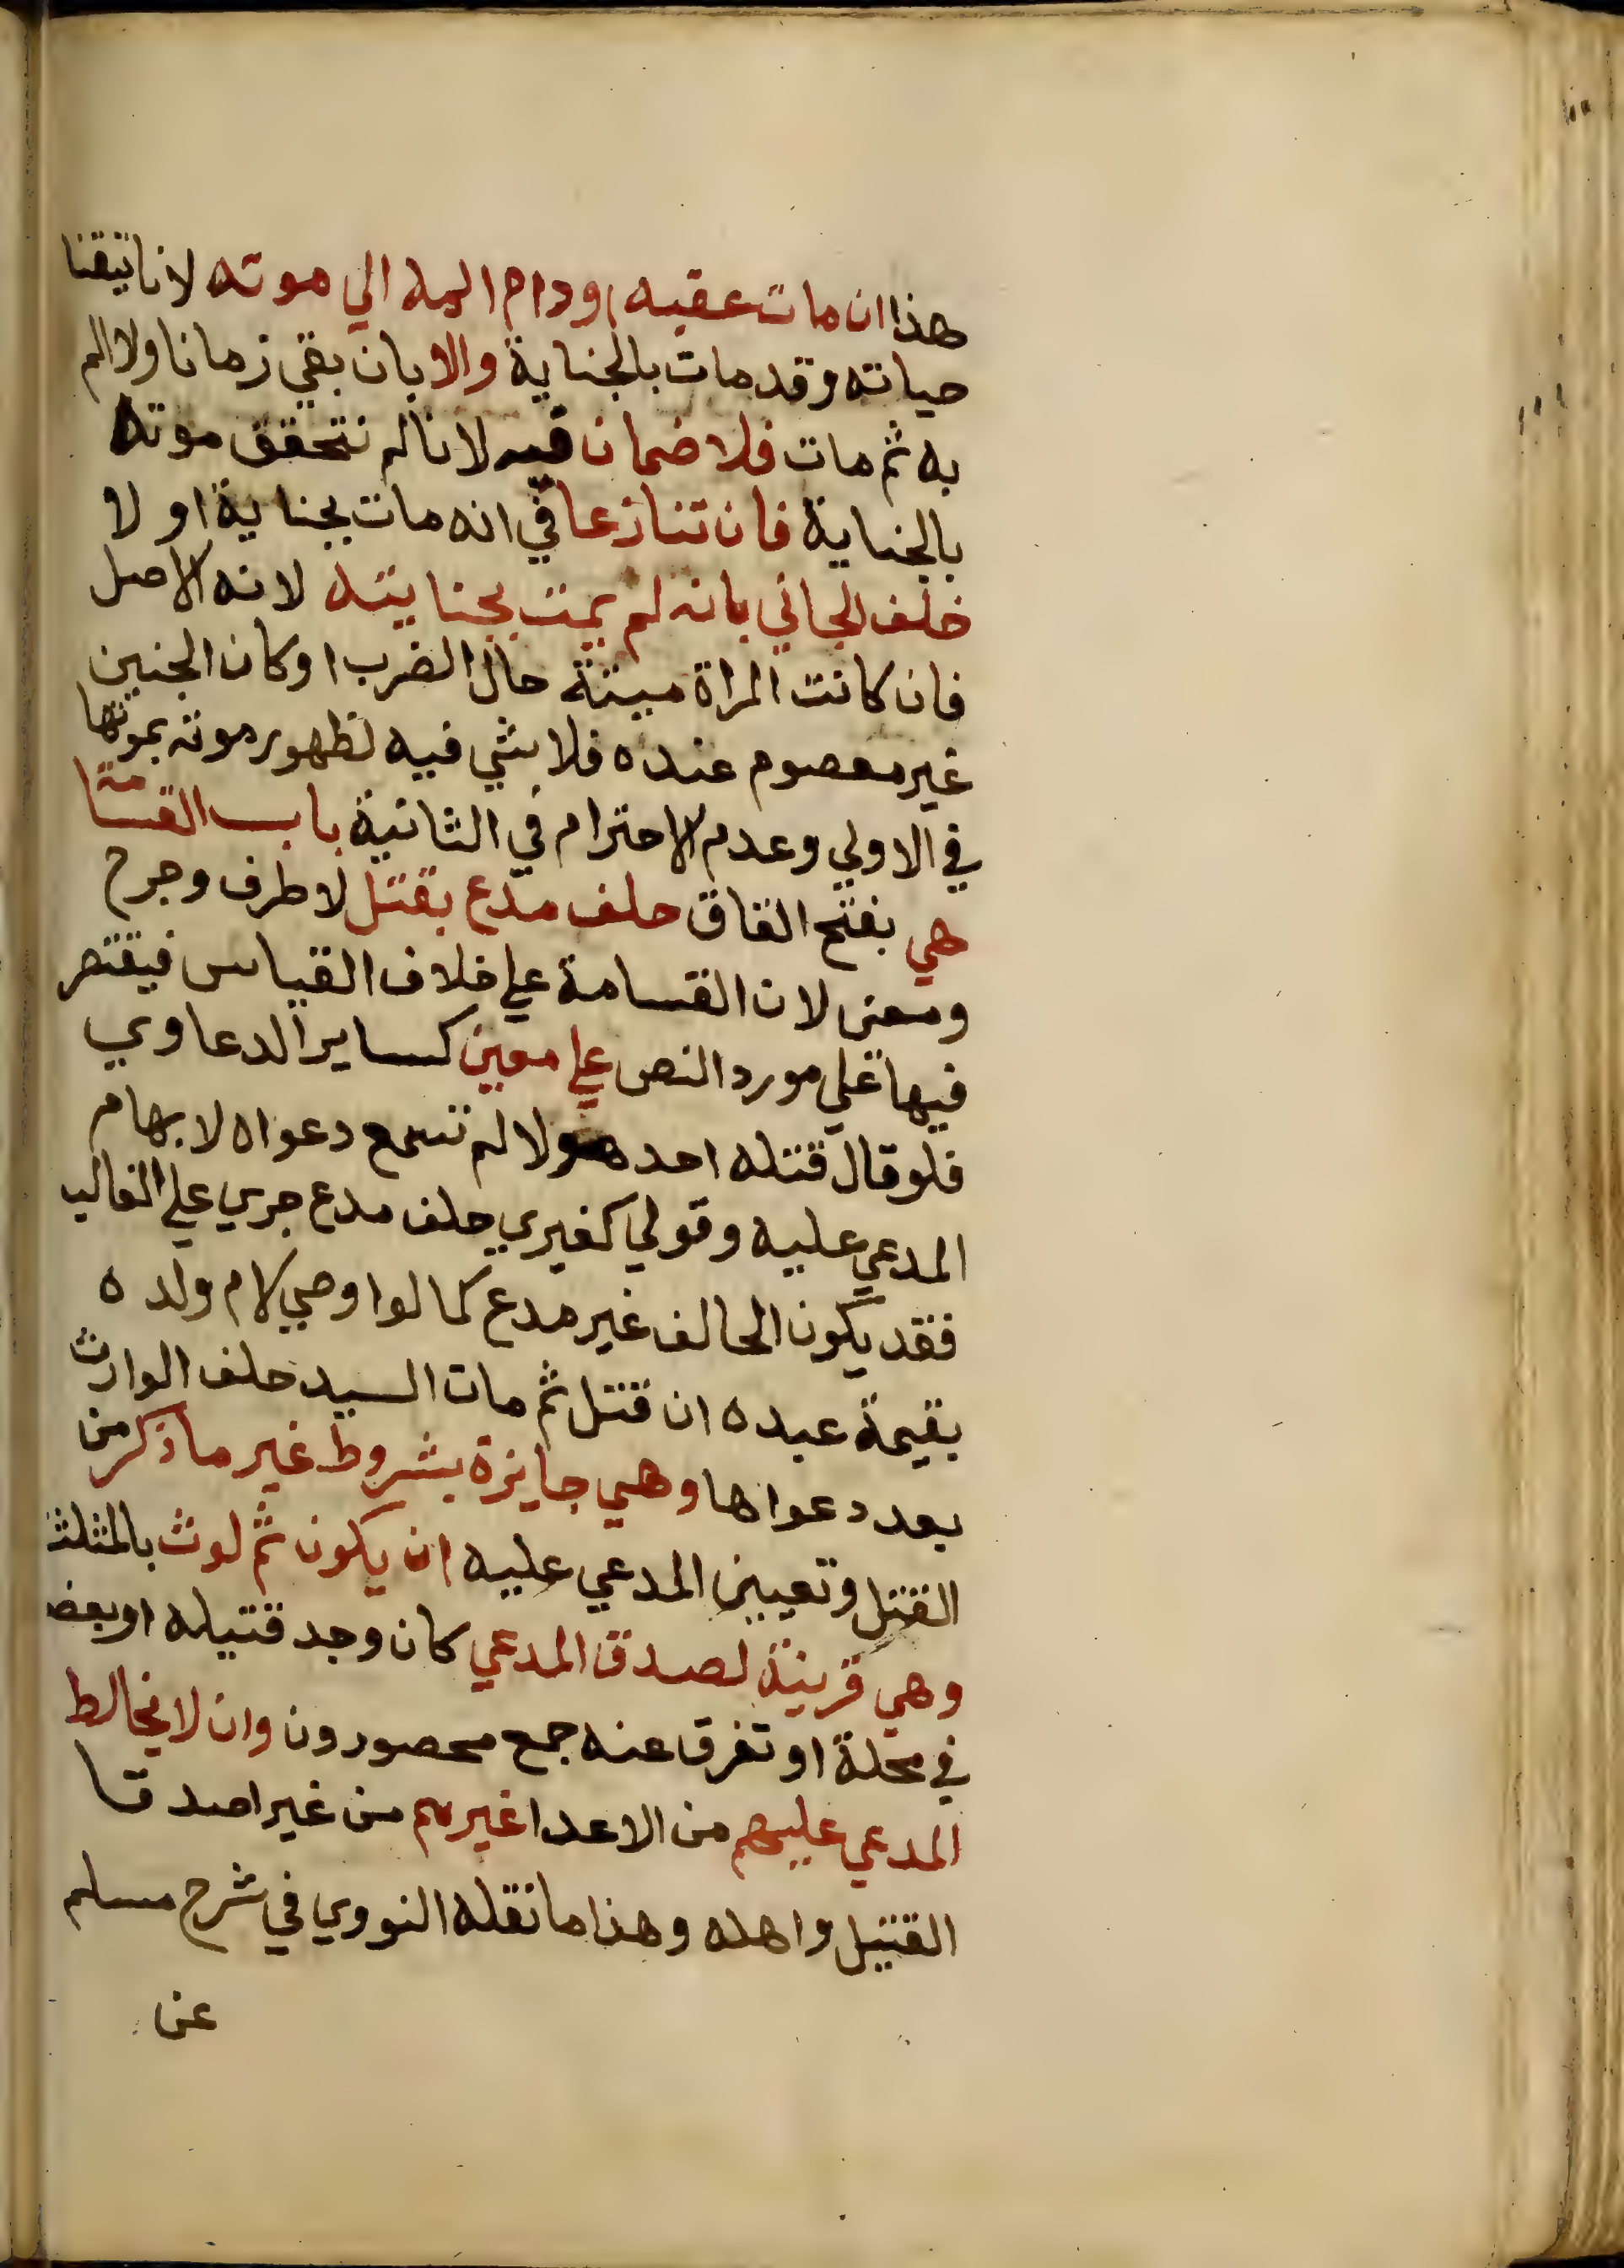 هذا ان مات عقبه او دام المه الي موته لانا تيقنا
حياته وقد مات بالجناية والا بان بقي زمانا ولا الم
به ثم مات فلا ضمان فيه لانا لم نتحقق موته
بالجناية فان تنازعا في انه مات بجناية او لا
خلف الجاني بانه لم يمت بجنايته لانه الاصل
فان كانت المراة ميتة حال الضرب او كان الجنين
غير معصوم عنده فلا شي فيه لظهور موته بموتها
في الاولي وعدم الاحترام في الثانية باب القسامة
هي بفتح القاف حلف مدع بقتل لا طرف وجرح
ومعنى لان القسامة علي خلاف القياس فيقتصر
فيها علي مورد النص علي معين كساير الدعاوي
فلو قال قتله احد هولا لم تسمع دعواه لابهام
المدعي عليه وقولي كغيري حلف مدع جري علي الغالب
فقد يكون الحالف غير مدع كما لو اوصي لام ولده
بقيمة عبده ان قتل ثم مات السيد حلف الوارث
بعد دعواها وهي جايزة بشروط غير ما ذكر من
القتل وتعيين المدعي عليه ان يكون ثم لوث بالمثلثة
وهي قرينة لصدق المدعي كان وجد قتيله او بعضه
في محلة او تفرق عنه جمع محصورون وان لا يخالط
المدعي عليهم من الاعدا غيرهم من غير اصدقا
القتيل واهله وهذا ما نقله النووي في شرح مسلم
عن